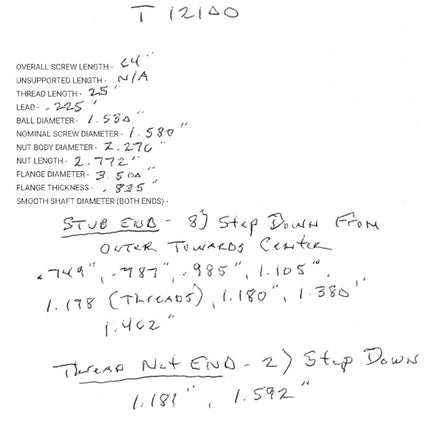 T 12100
OVERALL SCREW LENGTH - 64"
UNSUPPORTED LENGTH - N/A
THREAD LENGTH - 25"
LEAD - .225"
BALL DIAMETER - 1.530"
NOMINAL SCREW DIAMETER - 1.580"
NUT BODY DIAMETER - 2.276"
NUT LENGTH - 2.772"
FLANGE DIAMETER - 3.500"
FLANGE THICKNESS - .835"
SMOOTH SHAFT DIAMETER (BOTH ENDS) -
STUB END - 8) Step Down From
OUTER TOWARDS CENTER
.749", .787", .985", 1.105",
1.178 (THREADS), 1.180", 1.380"
1.462"
Thread Nut END - 2) Step Down
1.181", 1.592"